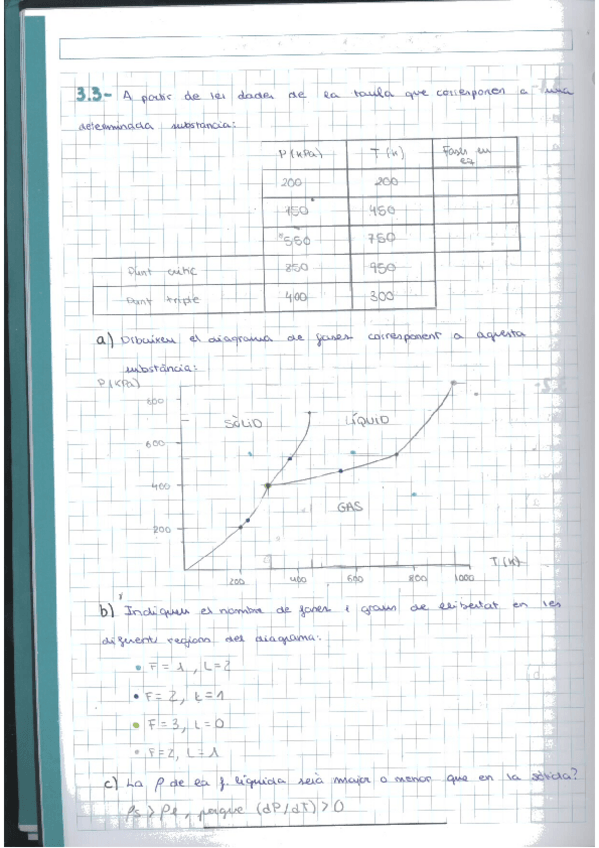 3.3- A partir de les dades de la taula que corresponen a una
determinada substància:
P(kPa) T(K) Fases en eq
200 200
450
550 750
Punt crític 850 950
Punt triple 400 300
a) Dibuixeu el diagrama de fases corresponent a aquesta
substància:
P(KPa)
800
600
400
200
SÒLID
LÍQUID
GAS
200 400 600 800 1000
T(K)
b) Indiqueu el nombre de fases i graus de llibertat en les
diferent regions del diagrama:
• F=1, L=2
• F=2, L=1
• F=3, L=0
• F=2, L=1
c) La ρ de la f. líquida serà major o menor que en la sòlida?
ρs > ρl, perque (dP/dT) > 0